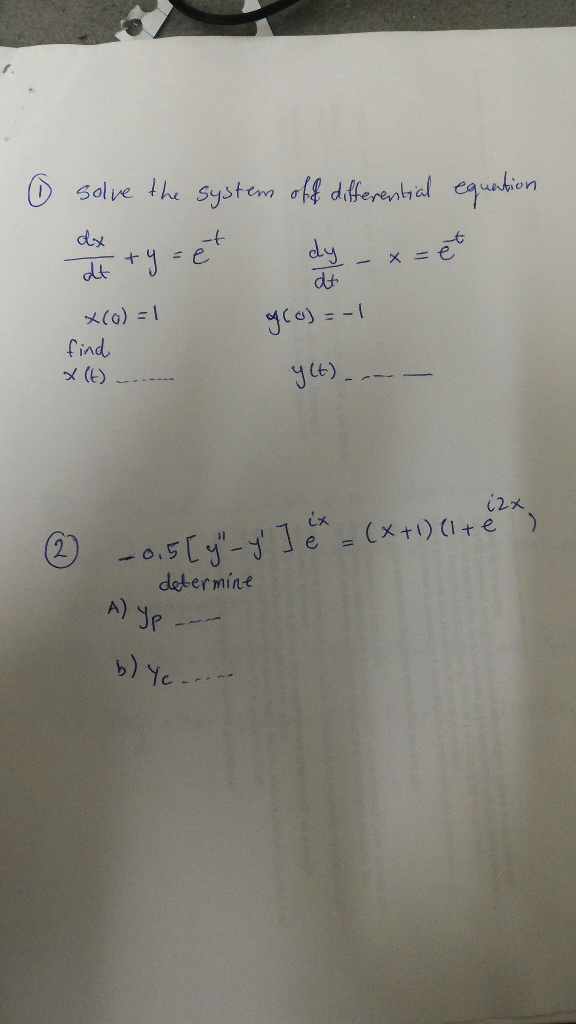 ① solve the system off differential equation
dx/dt + y = e^-t dy/dt - x = e^-t
x(0) = 1 y(0) = -1
find
x(t) ------- y(t) - -- - —
② -0.5[y"-y']e^ix = (x+1)(1+e^i2x)
determine
A) yp ----
b) yc ------